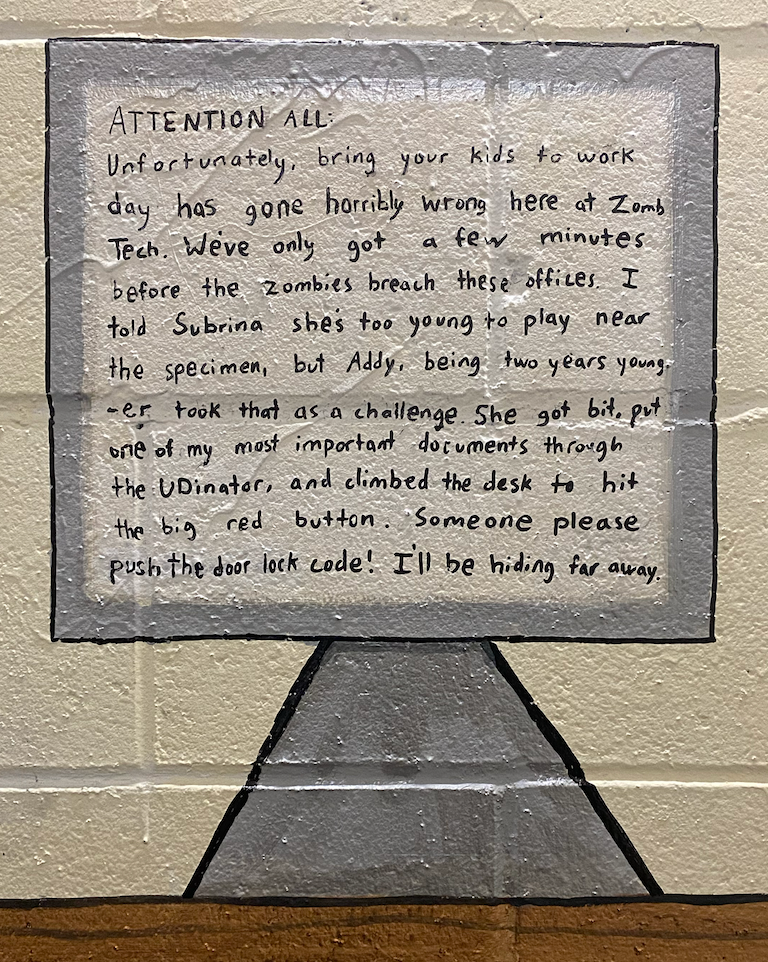 ATTENTION ALL:
Unfortunately, bring your kids to work
day has gone horribly wrong here at Zomb
Tech. We've only got a few minutes
before the zombies breach these offices. I
told Subrina she's too young to play near
the specimen, but Addy, being two years young-
-er took that as a challenge. She got bit, put
one of my most important documents through
the UDinator, and climbed the desk to hit
the big red button. Someone please
push the door lock code! I'll be hiding far away.